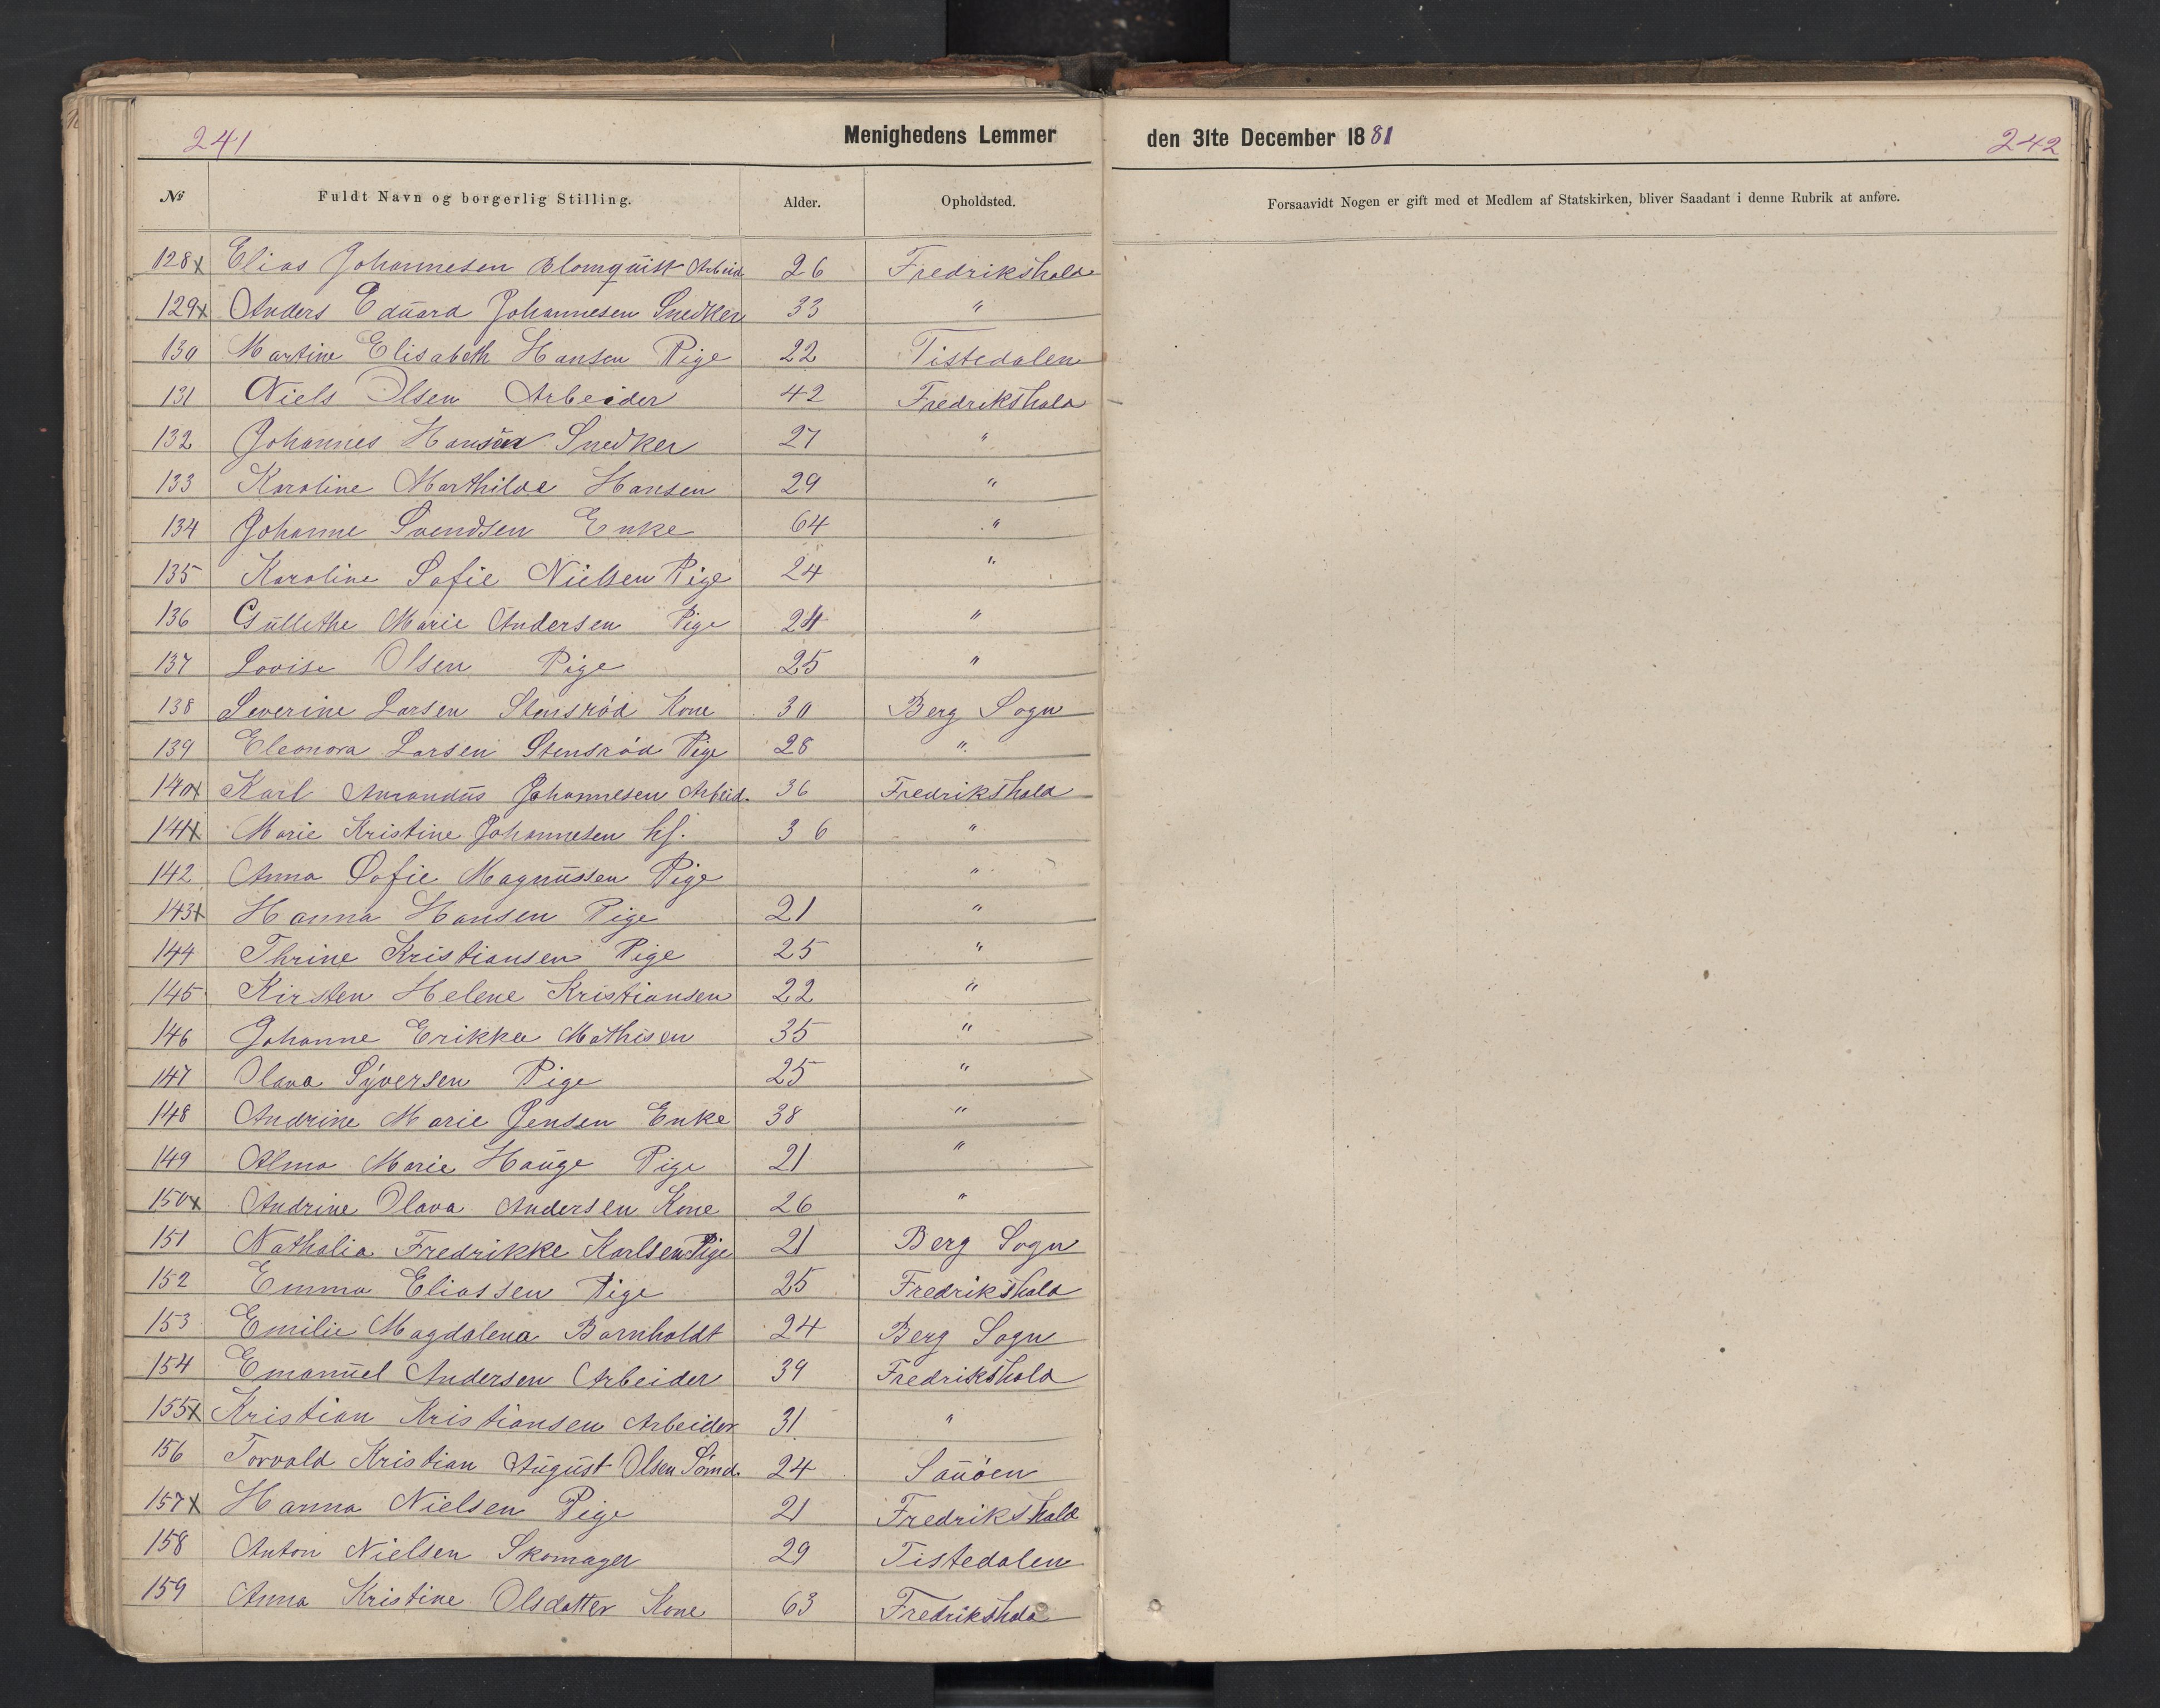 241 Menighedens Lemmer den 31te December 1881 242
No Fuldt Navn og borgerlig Stilling. Alder. Opholdsted. Forsaavidt Nogen er gift med et Medlem af Statskirken, bliver Saadant i denne Rubrik at anføre.
128x Elias Johannesen Blomquist Arbeid. 26 Fredrikshald
129x Anders Eduard Johannesen Snedker 33 "
130 Martine Elisabeth Hansen Pige 22 Tistedalen
131 Niels Olsen Arbeider 42 Fredrikshald
132 Johannes Hansen Snedker 27 "
133 Karoline Marthilde Hansen 29 "
134 Johanne Svendsen Enke 64 "
135 Karoline Sofie Nielsen Pige 24 "
136 Gullethe Marie Andersen Pige 24 "
137 Lovise Olsen Pige 25 "
138 Severine Larsen Stensrød Kone 30 Berg Sogn
139 Eleonora Larsen Stensrød Pige 28 "
140x Karl Amandus Johannesen Arbeid. 36 Fredrikshald
141x Marie Kristine Johannesen hf. 36 "
142 Anna Sofie Magnussen Pige "
143x Hanna Hansen Pige 21 "
144 Thrine Kristiansen Pige 25 "
145 Kirsten Helene Kristiansen 22 "
146 Johanne Erikka Mathisen 35 "
147 Olava Syversen Pige 25 "
148 Andrine Marie Jensen Enke 38 "
149 Alma Marie Hauge Pige 21 "
150x Andrine Olava Andersen Kone 26 "
151 Nathalia Fredrikke Karlsen Pige 21 Berg Sogn
152 Emma Eliassen Pige 25 Fredrikshald
153 Emilie Magdalena Barnholdt 24 Berg Sogn
154 Emanuel Andersen Arbeider 39 Fredrikshald
155x Kristian Kristiansen Arbeider 31 "
156 Torvald Kristian August Olsen Sømd. 24 Sauøen
157x Hanna Nielsen Pige 21 Fredrikshald
158 Anton Nielsen Skomager 29 Tistedalen
159 Anna Kristine Olsdatter Kone 63 Fredrikshald